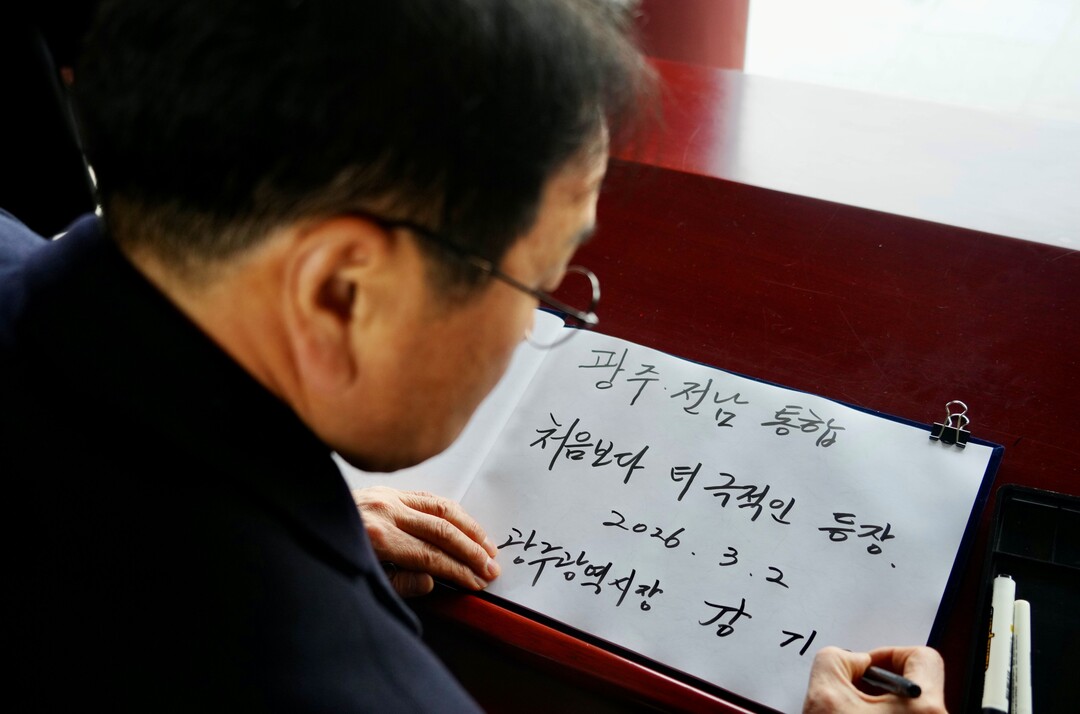 광주·전남 통합
처음보다 더 극적인 등장.
2026. 3. 2
광주광역시장 강 기